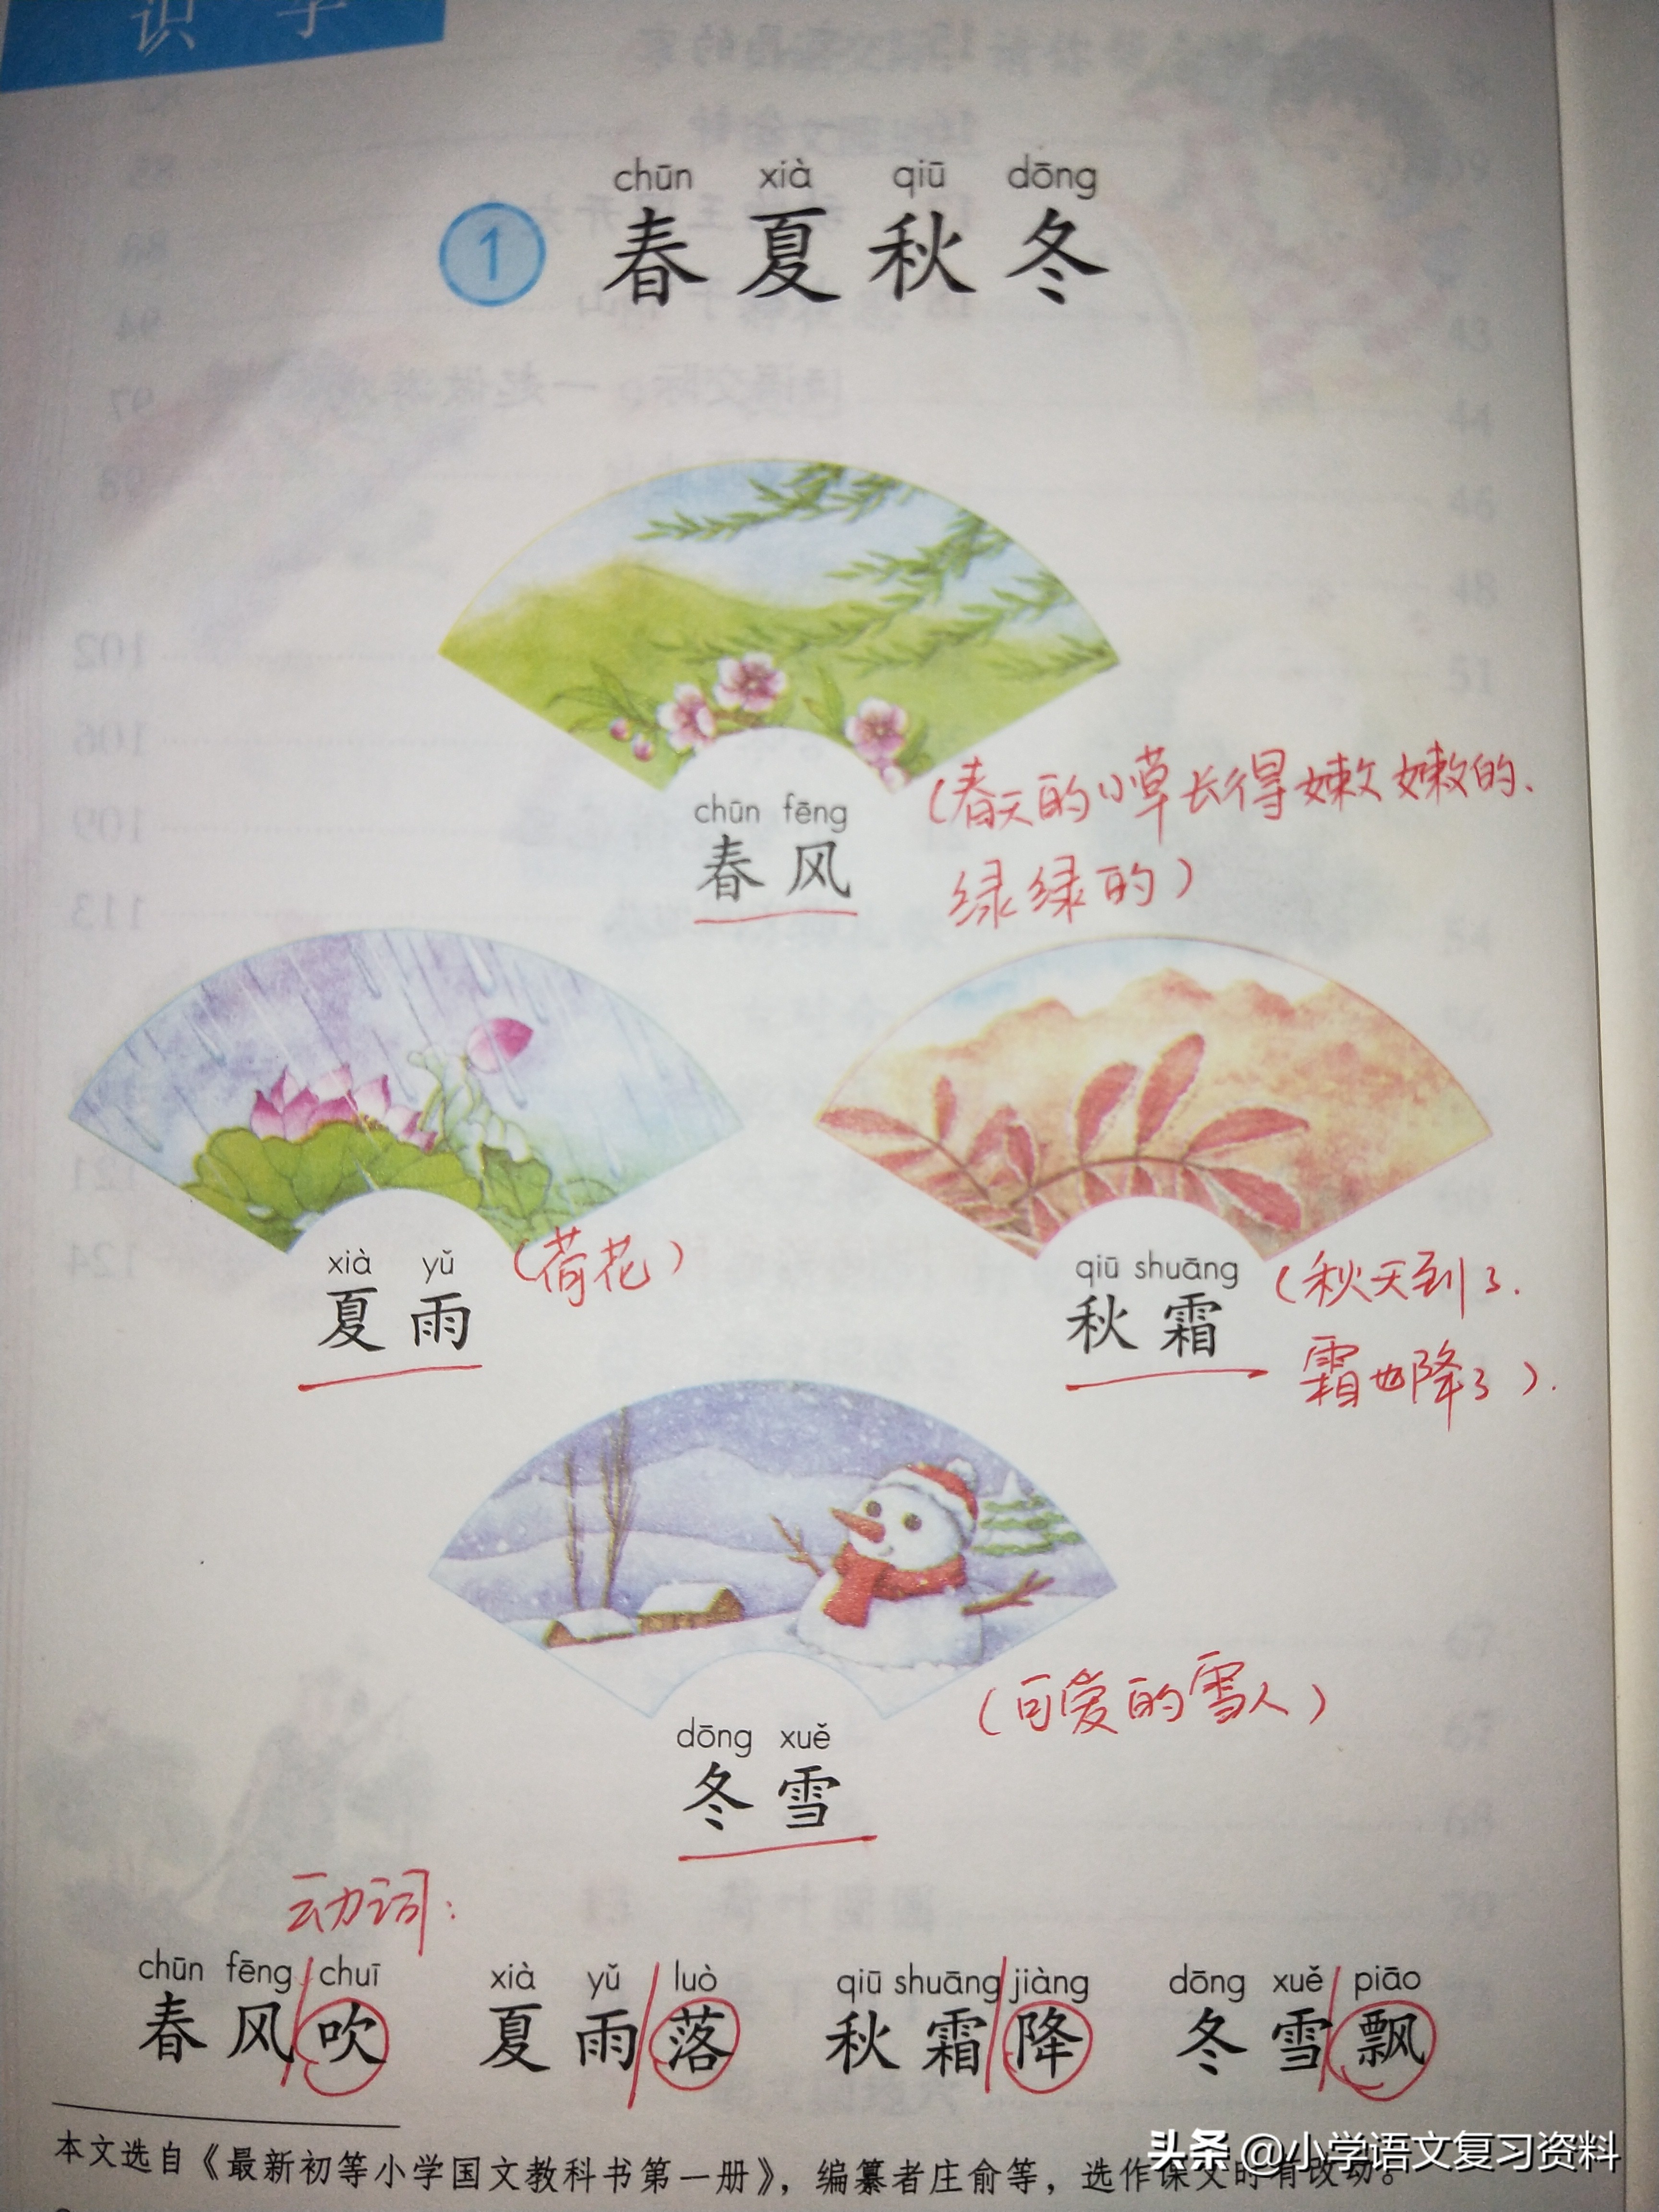 识字
chūn xià qiū dōng
1 春夏秋冬
chūn fēng
春风
(春天的小草长得嫩嫩的、
绿绿的)
xià yǔ
夏雨
(荷花)
qiū shuāng
秋霜
(秋天到了.
霜也降了).
dōng xuě
冬雪
(可爱的雪人)
动词:
chūn fēng chuī xià yǔ luò qiū shuāng jiàng dōng xuě piāo
春风吹 夏雨落 秋霜降 冬雪飘
本文选自《最新初等小学国文教科书第一册》，编纂者庄俞等，选作课文时有改动。
头条 @小学语文复习资料